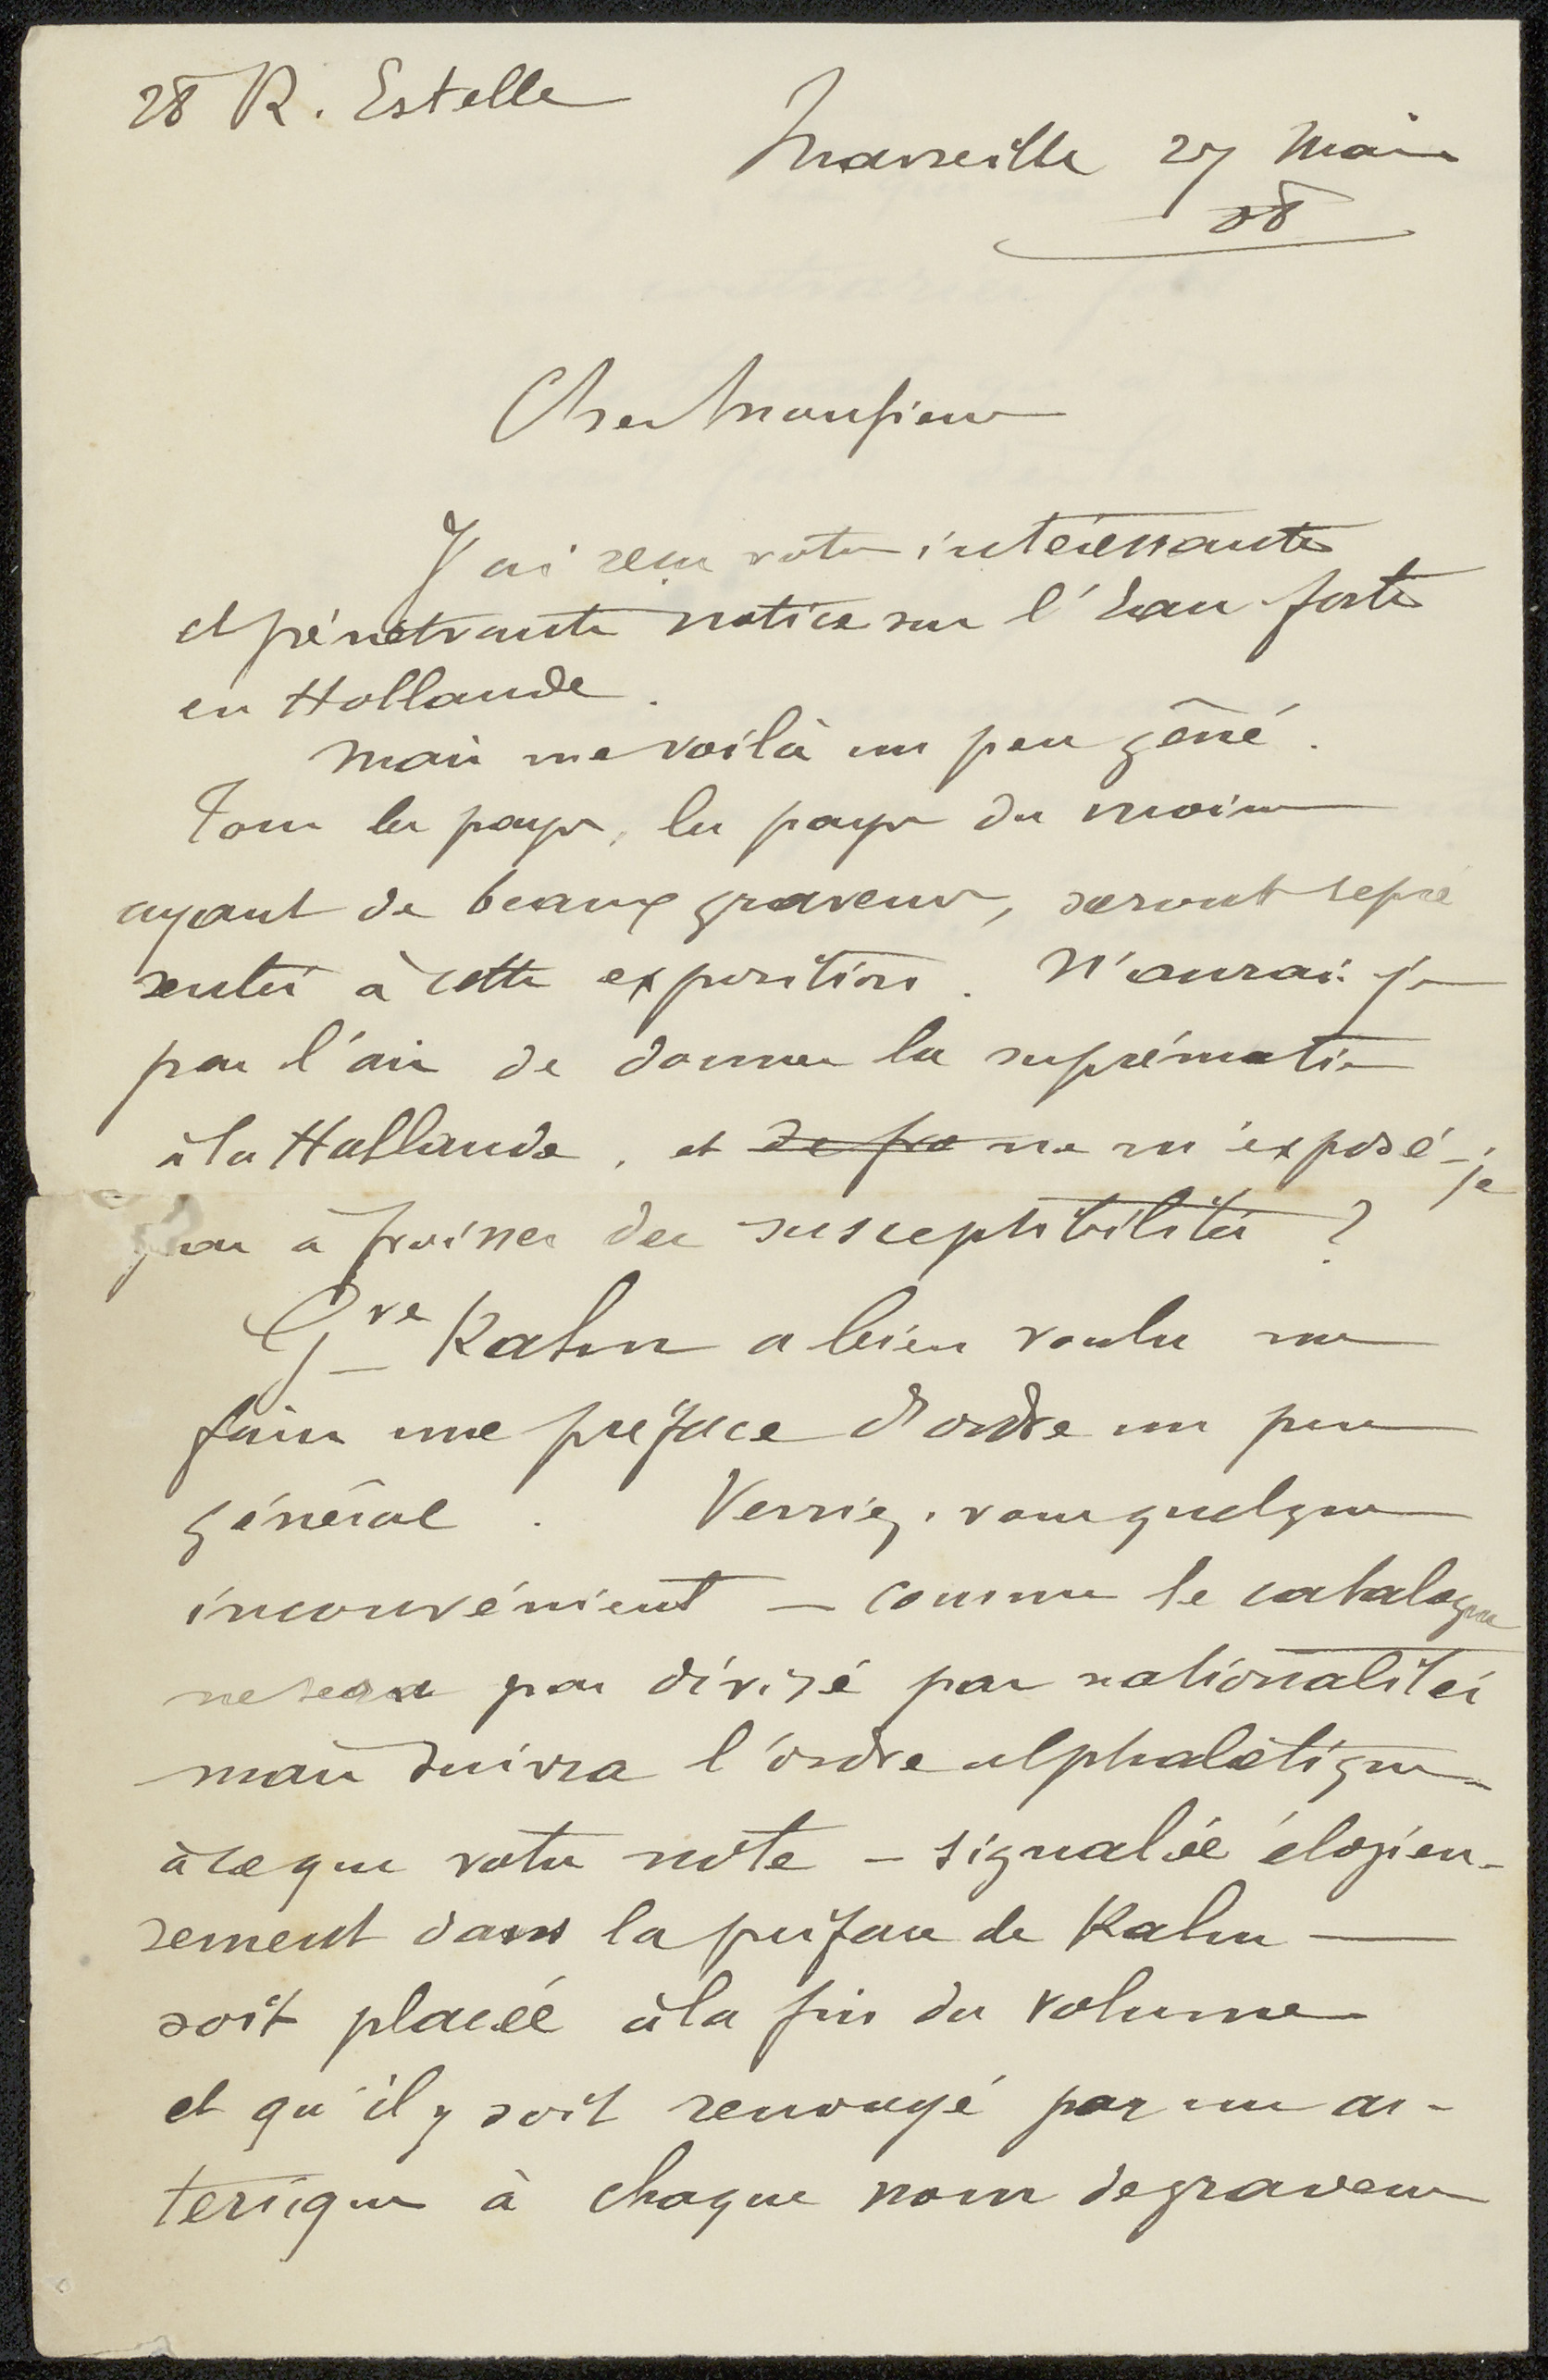 28 R. Estelle
Marseille 27 Mars
08
Cher Monsieur
J'ai reçu votre intéressante
et pénétrante notice sur l'Eau forte
en Hollande.
Mais me voilà un peu gêné.
Tous les pays, les pays du moins
ayant de beaux graveurs, seront repré
sentés à cette exposition. N'aurai-je
pas l'air de donner la suprématie
à la Hollande, et de fro ne m'exposé-je
pas à froisser des susceptibilités ?
Gve Kahn a bien voulu me
faire une préface d'ordre un peu
général. Verriez-vous quelque
inconvénient — comme le catalogue
ne sera pas divisé par nationalités
mais suivra l'ordre alphabétique —
à ce que votre note — signalée élogieu-
sement dans la préface de Kahn —
soit placée à la fin du volume
et qu'il y soit renvoyé par un as-
terique à chaque nom de graveur